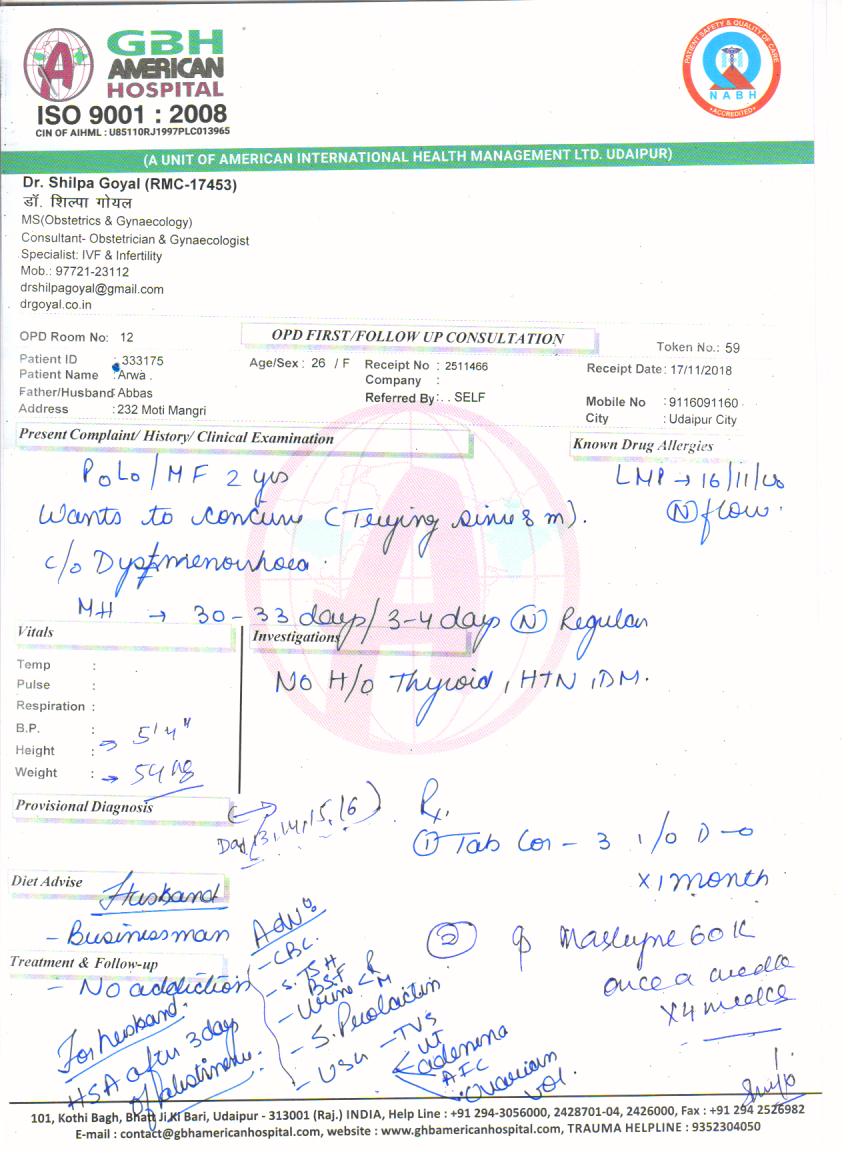 GBH
AMERICAN
HOSPITAL
ISO 9001 : 2008
CIN OF AIHML : U85110RJ1997PLC013965
PATIENT SAFETY & QUALITY OF CARE
NABH
ACCREDITED
(A UNIT OF AMERICAN INTERNATIONAL HEALTH MANAGEMENT LTD. UDAIPUR)
Dr. Shilpa Goyal (RMC-17453)
डॉ. शिल्पा गोयल
MS(Obstetrics & Gynaecology)
Consultant- Obstetrician & Gynaecologist
Specialist: IVF & Infertility
Mob.: 97721-23112
drshilpagoyal@gmail.com
drgoyal.co.in
OPD Room No: 12
OPD FIRST/FOLLOW UP CONSULTATION
Token No.: 59
Patient ID : 333175 Age/Sex : 26 / F Receipt No : 2511466 Receipt Date: 17/11/2018
Patient Name : Arwa . Company :
Father/Husband Abbas Referred By: . . SELF Mobile No : 9116091160
Address : 232 Moti Mangri City : Udaipur City
Present Complaint/ History/ Clinical Examination
Known Drug Allergies
P0L0 / MF 2 yrs
LMP → 16/11/18
Wants to conceive (Trying since 8 m).
(N) flow.
c/o Dysmenorrhoea.
MH → 30-33 days/ 3-4 days (N) Regular
Vitals
Investigations
Temp :
Pulse :
No H/o Thyroid, HTN, DM.
Respiration :
B.P. :
Height : → 5'4"
Weight : → 54 kg
Provisional Diagnosis
Day 13, 14, 15, 16)
Rx,
(1) Tab Cor-3 1/0 D
x 1 month
Diet Advise
Husband
- Businessman
Adv:
(2) 60K
once a week
x 4 weeks
Treatment & Follow-up
- No addiction
- CBC
- S. TSH
- Urine R M
- S. Prolactin
- USG - TVS
UT
adenexa
AFC
ovarian vol.
For husband.
HSA after 3 days
of abstinence.
101, Kothi Bagh, Bhatt Ji Ki Bari, Udaipur - 313001 (Raj.) INDIA, Help Line : +91 294-3056000, 2428701-04, 2426000, Fax : +91 294 2526982
E-mail : contact@gbhamericanhospital.com, website : www.ghbamericanhospital.com, TRAUMA HELPLINE : 9352304050